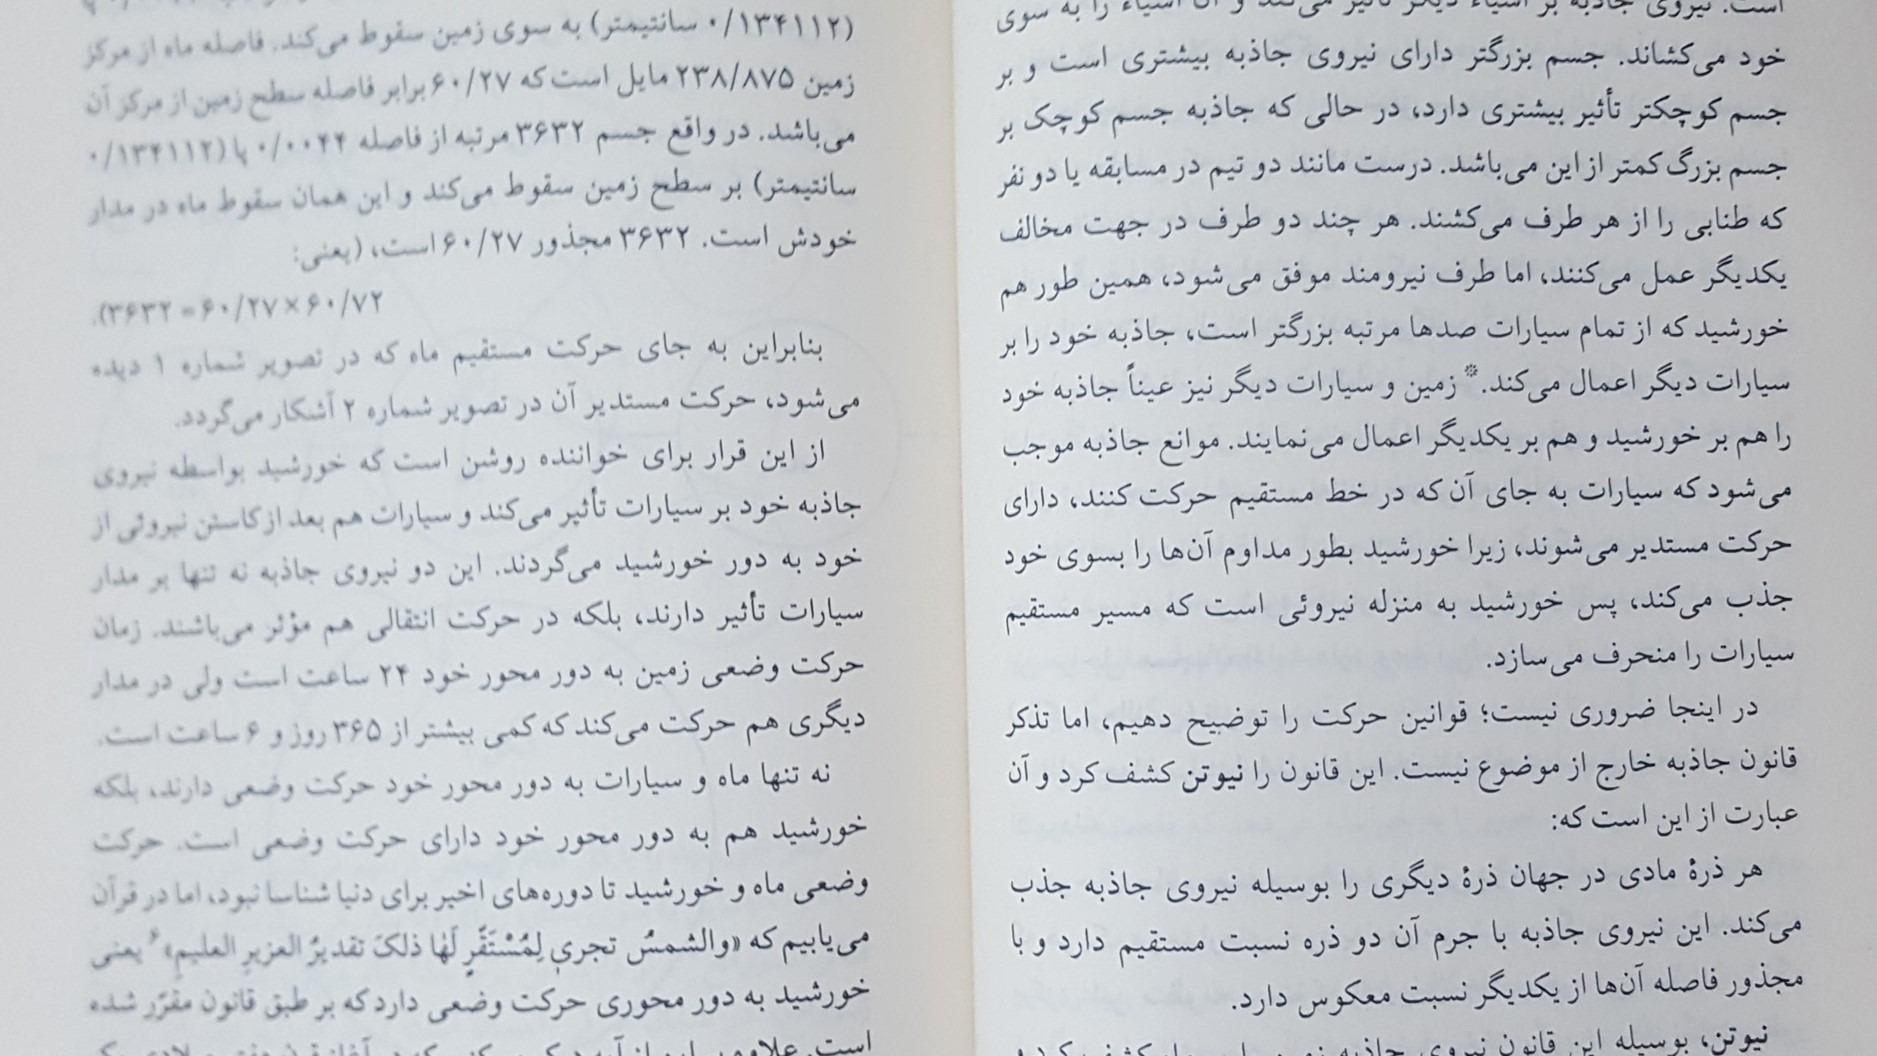 است. نیروی جاذبه بر اشیاء دیگر تأثیر می‌کند و آن اشیاء را به سوی
خود می‌کشاند. جسم بزرگتر دارای نیروی جاذبه بیشتری است و بر
جسم کوچکتر تأثیر بیشتری دارد، در حالی که جاذبه جسم کوچک بر
جسم بزرگ کمتر از این می‌باشد. درست مانند دو تیم در مسابقه یا دو نفر
که طنابی را از هر طرف می‌کشند. هر چند دو طرف در جهت مخالف
یکدیگر عمل می‌کنند، اما طرف نیرومند موفق می‌شود، همین طور هم
خورشید که از تمام سیارات صدها مرتبه بزرگتر است، جاذبه خود را بر
سیارات دیگر اعمال می‌کند.* زمین و سیارات دیگر نیز عیناً جاذبه خود
را هم بر خورشید و هم بر یکدیگر اعمال می‌نمایند. موانع جاذبه موجب
می‌شود که سیارات به جای آن که در خط مستقیم حرکت کنند، دارای
حرکت مستدیر می‌شوند، زیرا خورشید بطور مداوم آن‌ها را بسوی خود
جذب می‌کند، پس خورشید به منزله نیروئی است که مسیر مستقیم
سیارات را منحرف می‌سازد.
در اینجا ضروری نیست؛ قوانین حرکت را توضیح دهیم، اما تذکر
قانون جاذبه خارج از موضوع نیست. این قانون را نیوتن کشف کرد و آن
عبارت از این است که:
هر ذرهٔ مادی در جهان ذرهٔ دیگری را بوسیله نیروی جاذبه جذب
می‌کند. این نیروی جاذبه با جرم آن دو ذره نسبت مستقیم دارد و با
مجذور فاصله آن‌ها از یکدیگر نسبت معکوس دارد.
نیوتن، بوسیله این قانون نیروی جاذبه
(۰/۱۳۴۱۱۲ سانتیمتر) به سوی زمین سقوط می‌کند. فاصله ماه از مرکز
زمین ۲۳۸/۸۷۵ مایل است که ۶۰/۲۷ برابر فاصله سطح زمین از مرکز آن
می‌باشد. در واقع جسم ۳۶۳۲ مرتبه از فاصله ۰/۰۰۴۴ پا (۰/۱۳۴۱۱۲
سانتیمتر) بر سطح زمین سقوط می‌کند و این همان سقوط ماه در مدار
خودش است. ۳۶۳۲ مجذور ۶۰/۲۷ است، (یعنی:
۳۶۳۲ = ۶۰/۲۷ × ۶۰/۷۲).
بنابراین به جای حرکت مستقیم ماه که در تصویر شماره ۱ دیده
می‌شود، حرکت مستدیر آن در تصویر شماره ۲ آشکار می‌گردد.
از این قرار برای خواننده روشن است که خورشید بواسطه نیروی
جاذبه خود بر سیارات تأثیر می‌کند و سیارات هم بعد از کاستن نیروئی از
خود به دور خورشید می‌گردند. این دو نیروی جاذبه نه تنها بر مدار
سیارات تأثیر دارند، بلکه در حرکت انتقالی هم مؤثر می‌باشند. زمان
حرکت وضعی زمین به دور محور خود ۲۴ ساعت است ولی در مدار
دیگری هم حرکت می‌کند که کمی بیشتر از ۳۶۵ روز و ۶ ساعت است.
نه تنها ماه و سیارات به دور محور خود حرکت وضعی دارند، بلکه
خورشید هم به دور محور خود دارای حرکت وضعی است. حرکت
وضعی ماه و خورشید تا دوره‌های اخیر برای دنیا شناسا نبود، اما در قرآن
می‌یابیم که «والشمسُ تجری لِمُسْتَقَرٍّ لَهٰا ذلکَ تقدیرُ العزیزِ العلیمِ»۶ یعنی
خورشید به دور محوری حرکت وضعی دارد که بر طبق قانون مقرّر شده
است. علاوه